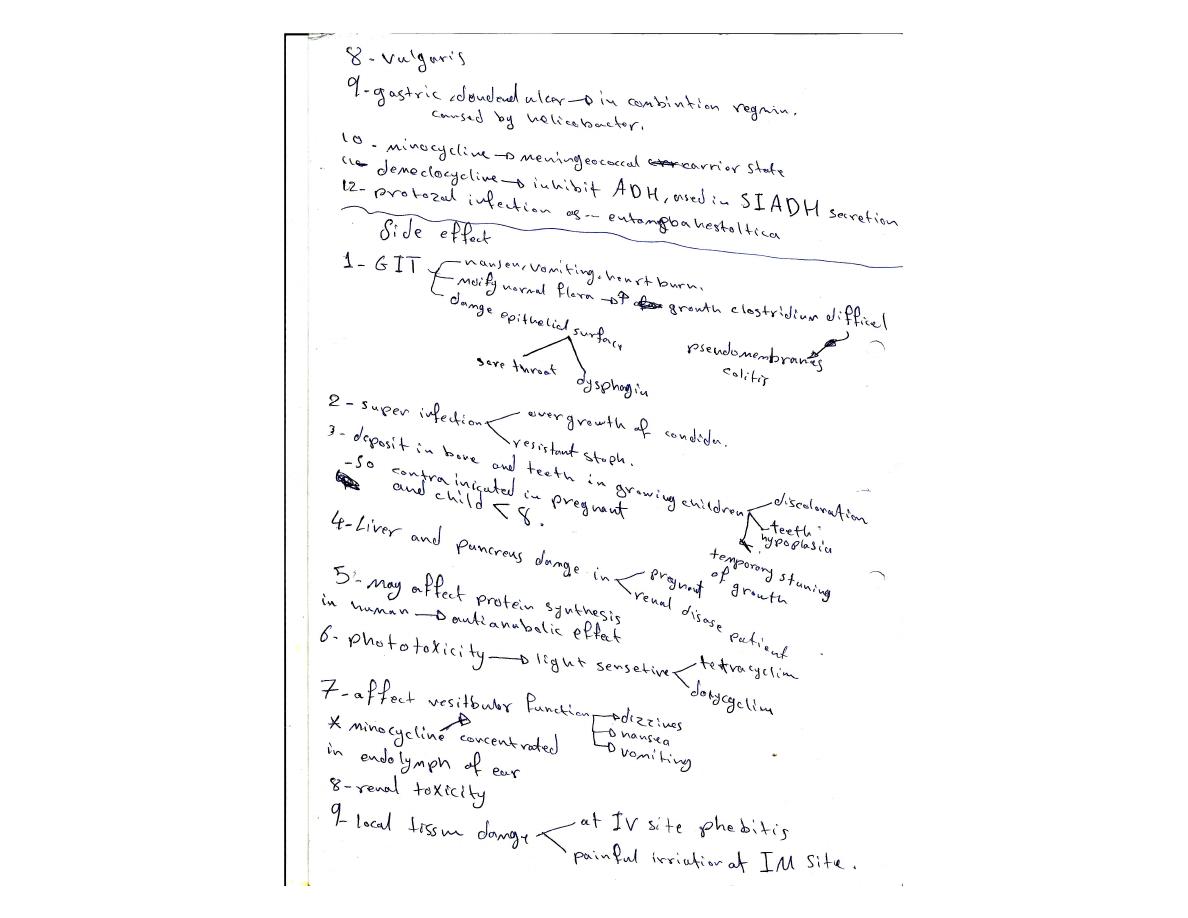 8 - vulgaris
9 - gastric, doudend ulcer → in combintion regmin.
caused by helicobacter.
10 - minocycline → meningeococcal carrior state
11 - demeclocycline → inhibit ADH, used in SIADH secretion
12 - protozal infection as -- entamgba hestoltica
Side effect
1 - GIT
nausea, vomiting, heart burn.
moify normal flora → ↑ growth clostridium difficel
pseudomembranes
colitis
damge epithelial surface
sore throat
dysphagia
2 - super infection
over growth of candida.
resistant staph.
3 - deposit in bone and teeth in growing children
discoloration
teeth
hypoplasia
temporary stuning
of growth
- So contra inicated in pregnant
and child < 8.
4 - Liver and puncreus damge in
pregnant
renal disose patient
5 - may affect protein synthesis
in human → antianabolic effect
6 - phototoxicity → light sensetive
tetracyclim
doxycyclim
7 - affect vesitbular function
→ dizzines
→ nausea
→ vomiting
* minocycline concentrated
in endolymph of ear
8 - renal toxicity
9 - local tissue damge
at IV site phebitis
painful irriation at IM site.